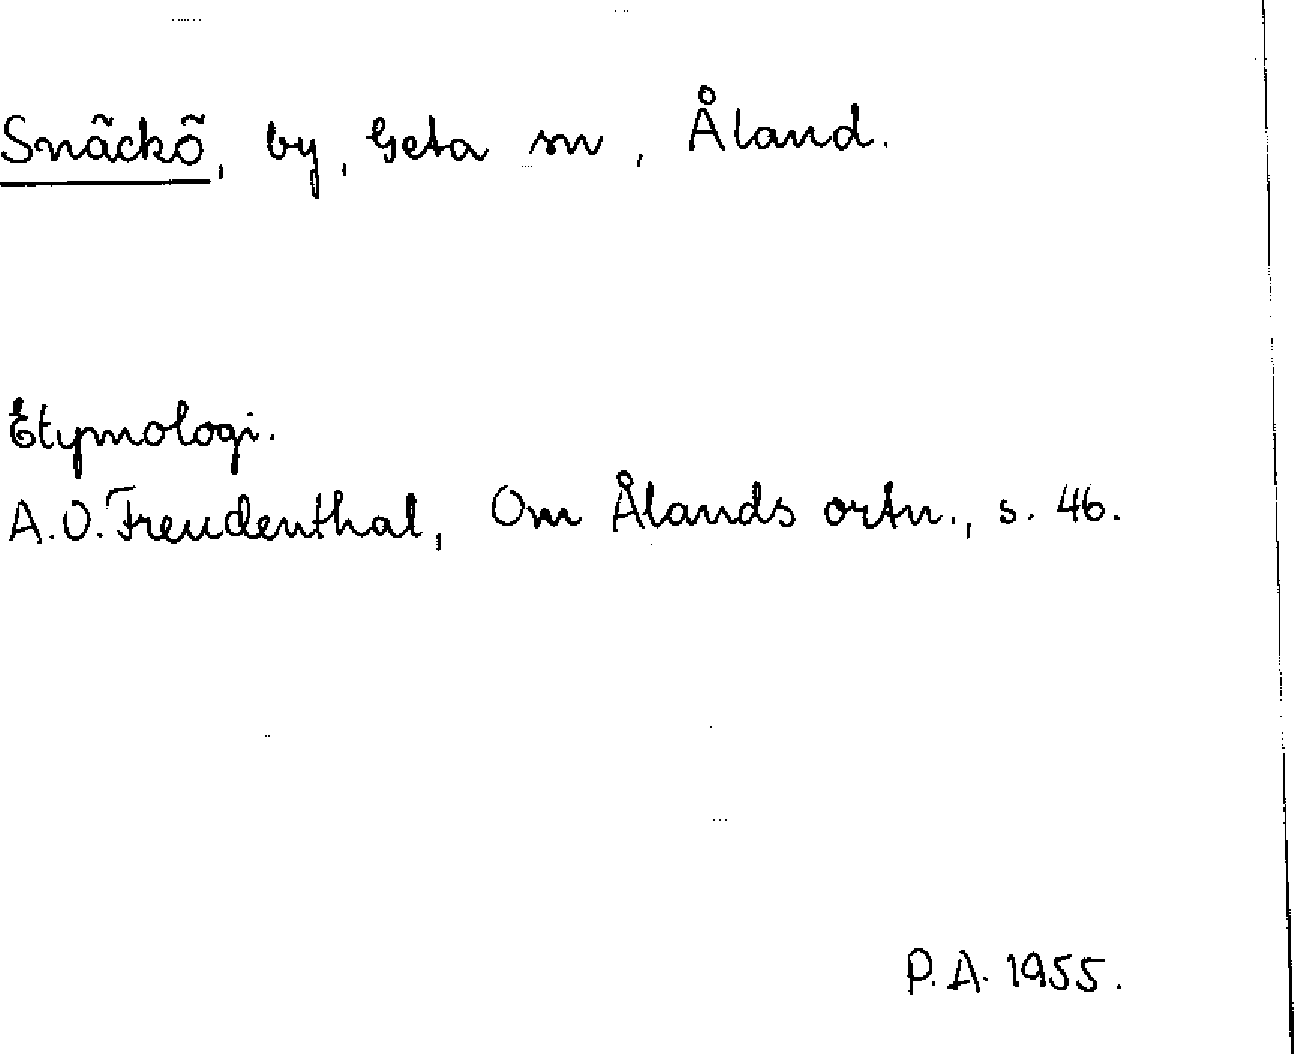 Snäckö, by, Geta sn, Åland.
Etymologi.
A.O. Freudenthal, Om Ålands ortn., s. 46.
P.A. 1955.